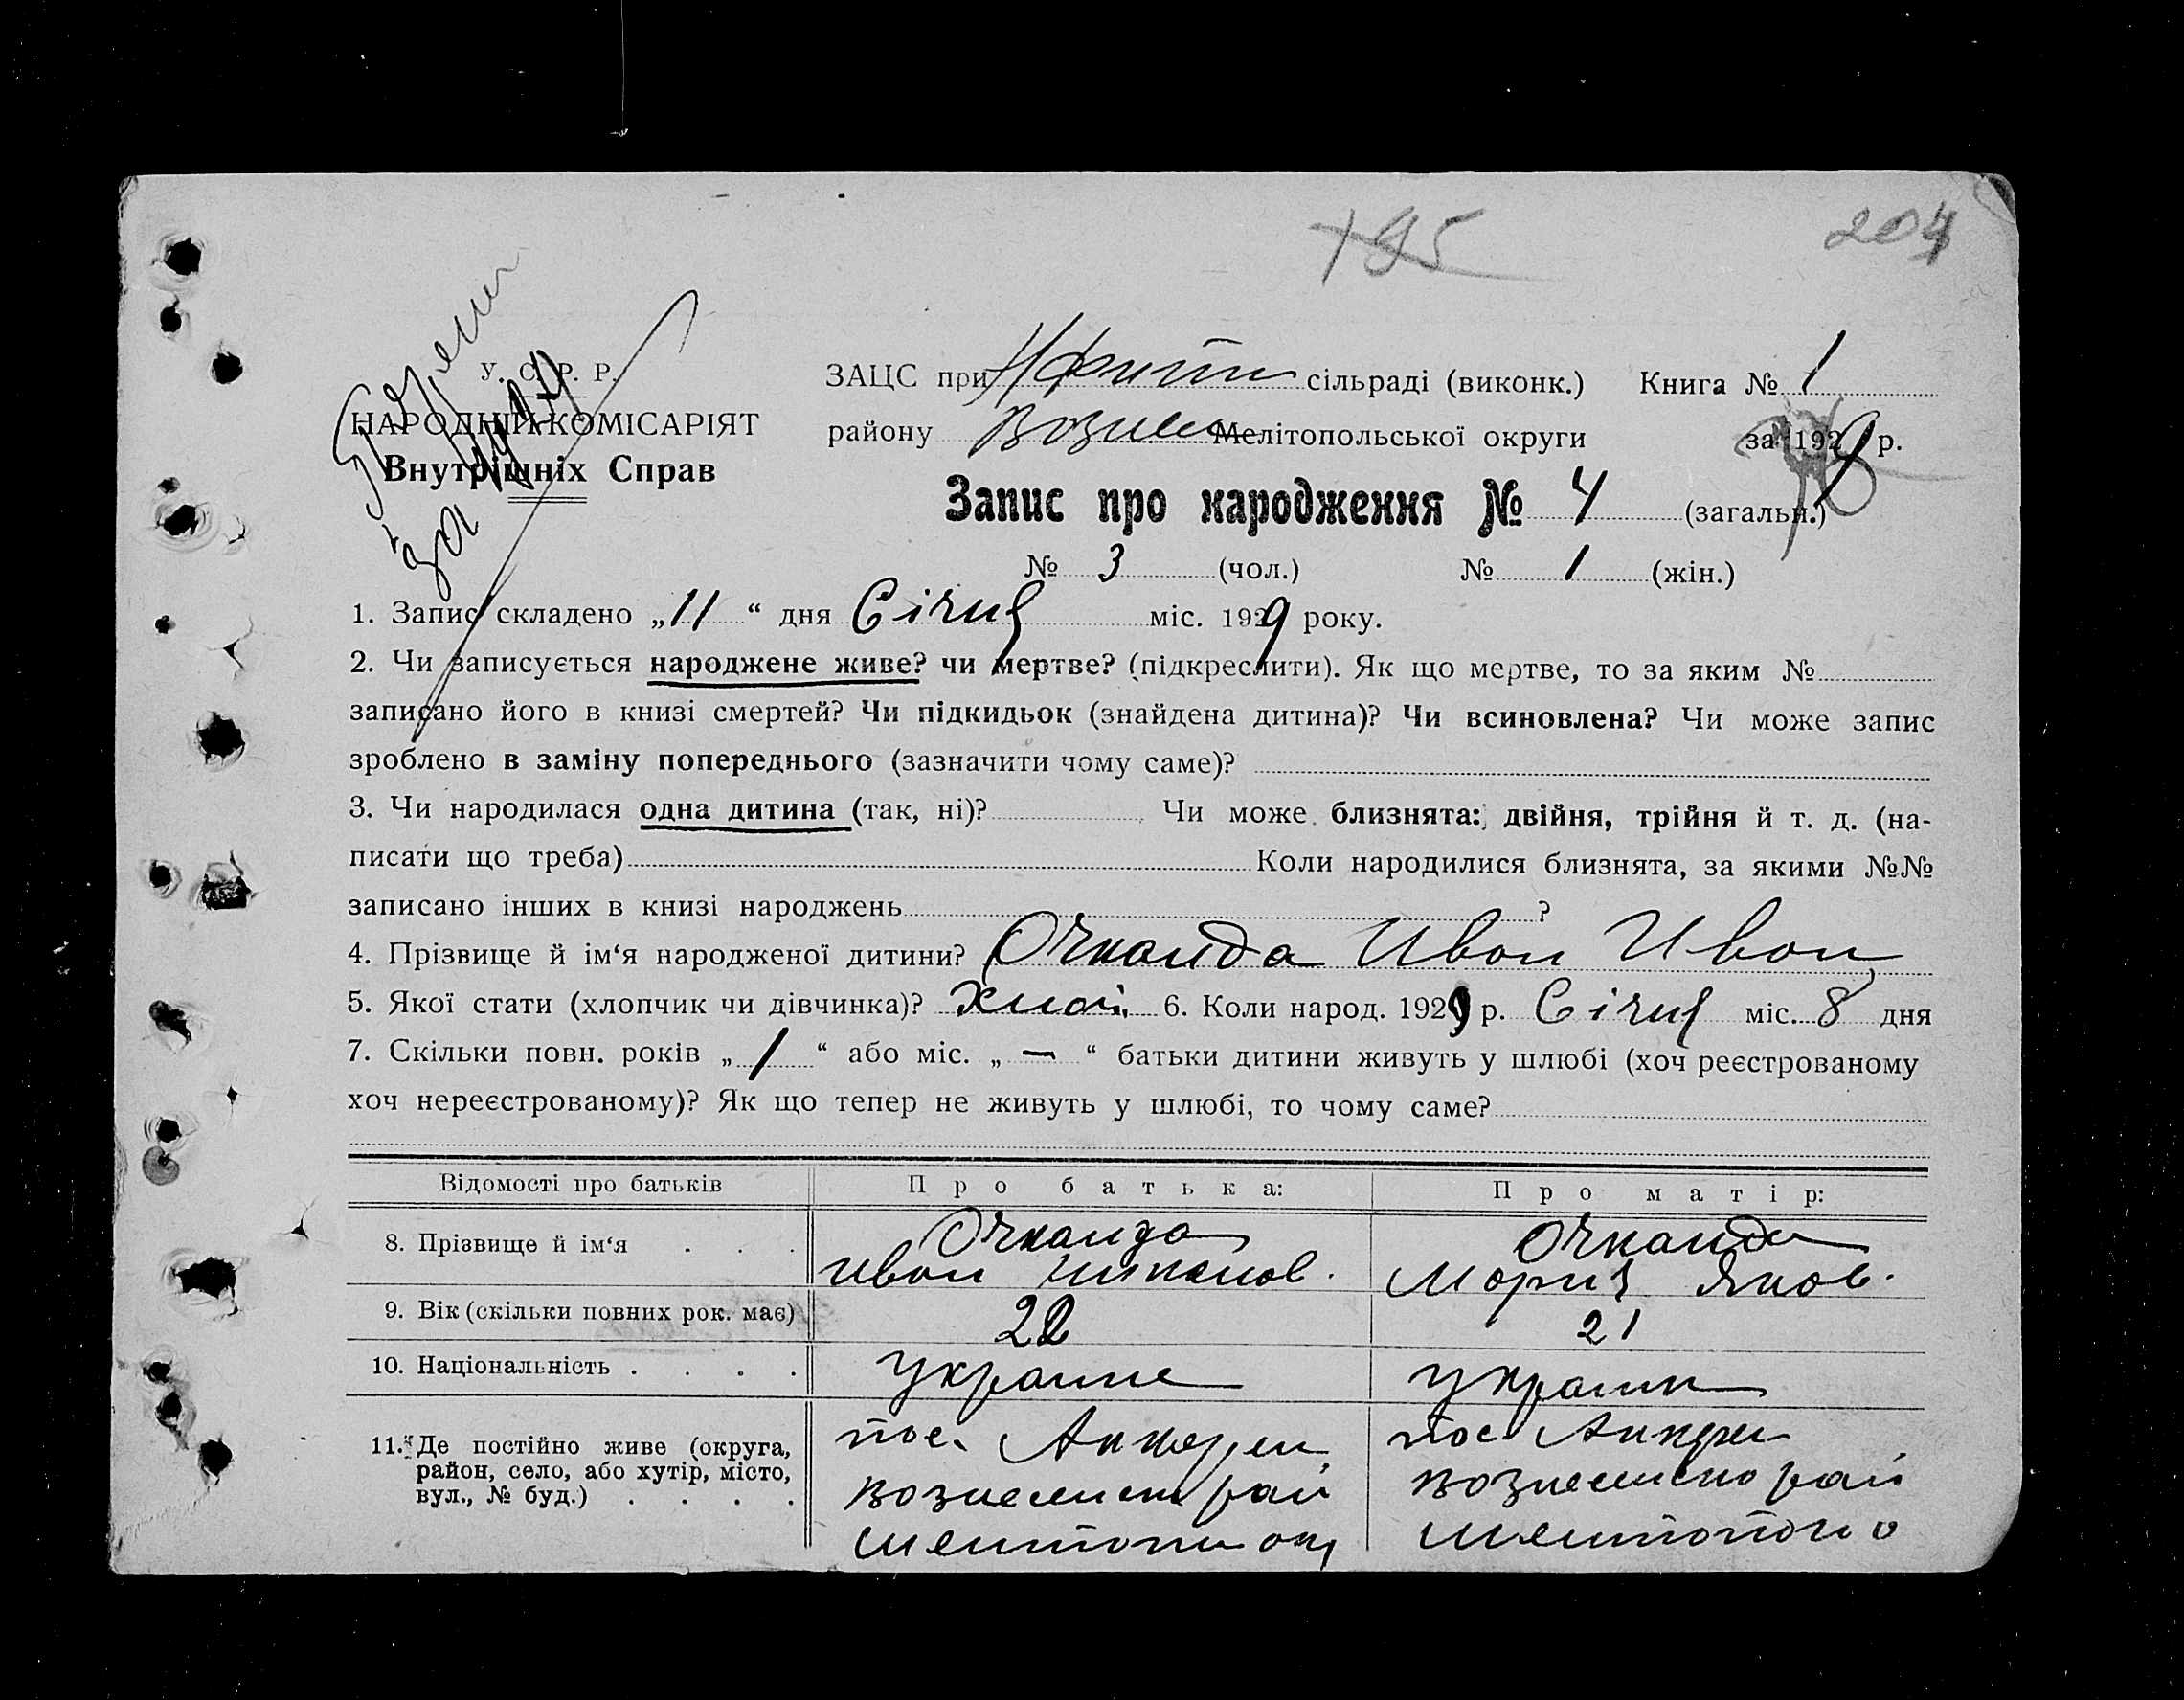 195
204
У. С. Р. Р.
НАРОДНІЙ КОМІСАРІЯТ
Внутрішніх Справ
за
ЗАЦС при сільраді (виконк.) Книга № 1
району Вознес Мелітопольської округи за 1929 р.
Запис про народження № 4 (загальн.)
№ 3 (чол.) № 1 (жін.)
1. Запис складено „11“ дня Січня міс. 1929 року.
2. Чи записується народжене живе? чи мертве? (підкреслити). Як що мертве, то за яким №
записано його в книзі смертей? Чи підкидьок (знайдена дитина)? Чи всиновлена? Чи може запис
зроблено в заміну попереднього (зазначити чому саме)?
3. Чи народилася одна дитина (так, ні)? Чи може близнята: двійня, трійня й т. д. (на-
писати що треба) Коли народилися близнята, за якими №№
записано інших в книзі народжень ?
4. Прізвище й ім‘я народженої дитини? Очканда Иван Иван
5. Якої стати (хлопчик чи дівчинка)? 6. Коли народ. 1929 р. Січня міс. 8 дня
7. Скільки повн. років „1“ або міс. „—“ батьки дитини живуть у шлюбі (хоч реєстрованому
хоч нереєстрованому)? Як що тепер не живуть у шлюбі, то чому саме?
Відомості про батьків Про батька: Про матір:
8. Прізвище й ім‘я . . . Очканда Очканда
Иван Мария Яков.
9. Вік (скільки повних рок. має) 22 21
10. Національність . . . . Украине Украин
11. Де постійно живе (округа, район, село, або хутір, місто, вул., № буд.) . . . .
пос. пос
Вознесенск рай Вознесенско рай
Мелитопол окр Мелитопол о